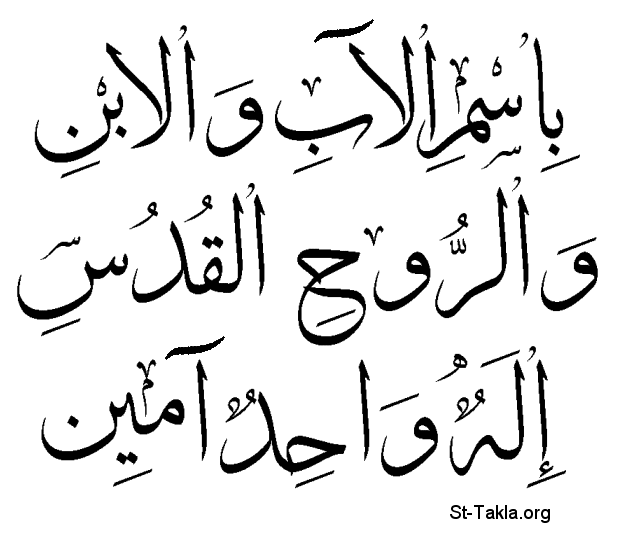 بِاسْمِ الآبِ وَالابْنِ
وَالرُّوحِ القُدُسِ
إِلَهٌ وَاحِدٌ آمِين
St-Takla.org